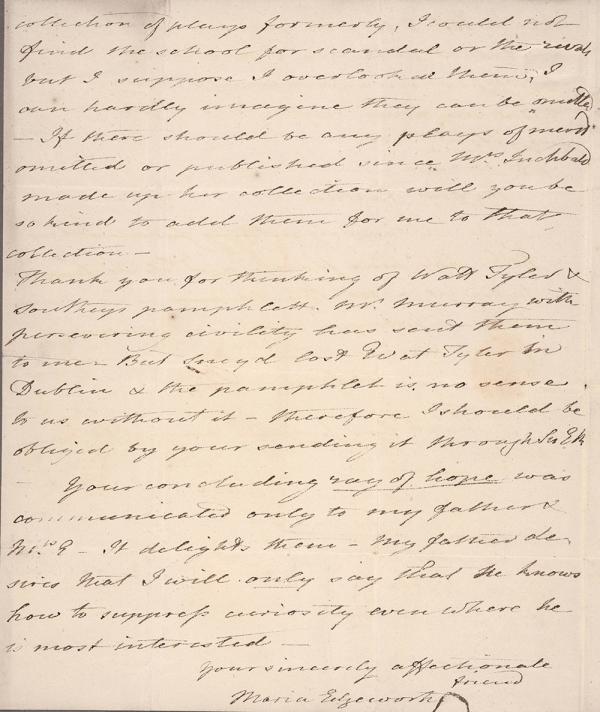 collection of plays formerly, I could not
find the school for scandal or the rivals
but I suppose I overlooked them, I
can hardly imagine they can be omitted
— If there should be any plays of merit
omitted or published since Mrs Inchbald
made up her collection will you be
so kind to add them for me to that
collection —
Thank you for thinking of Watt Tyler &
Southeys pamphlett. Mr. Murray with
persevering civility has sent them
to me – But Sneyd lost Wat Tyler in
Dublin & the pamphlet is no sense
to us without it – therefore I should be
obliged by your sending it through Sir E
— Your concluding ray of hope was
communicated only to my father &
Mrs E – It delights them – My father de
sires that I will only say that he knows
how to suppress curiosity even where he
is most interested —
Your sincerely affectionate
friend
Maria Edgeworth